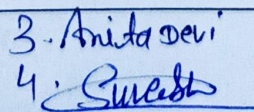 3. Anita Devi
4. Suresh